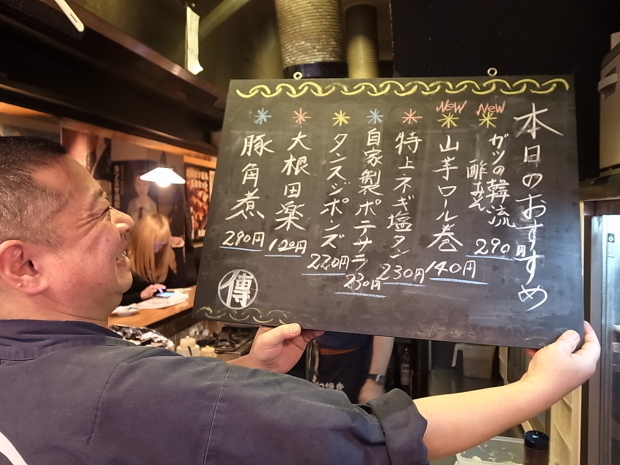 本日のおすすめ
NEW
ガツの韓流
酢みそ
290円
NEW
山芋ロール巻
140円
特上ネギ塩タン
230円
自家製ポテサラ
230円
タンスジポンズ
220円
大根田楽
120円
豚角煮
290円
傳